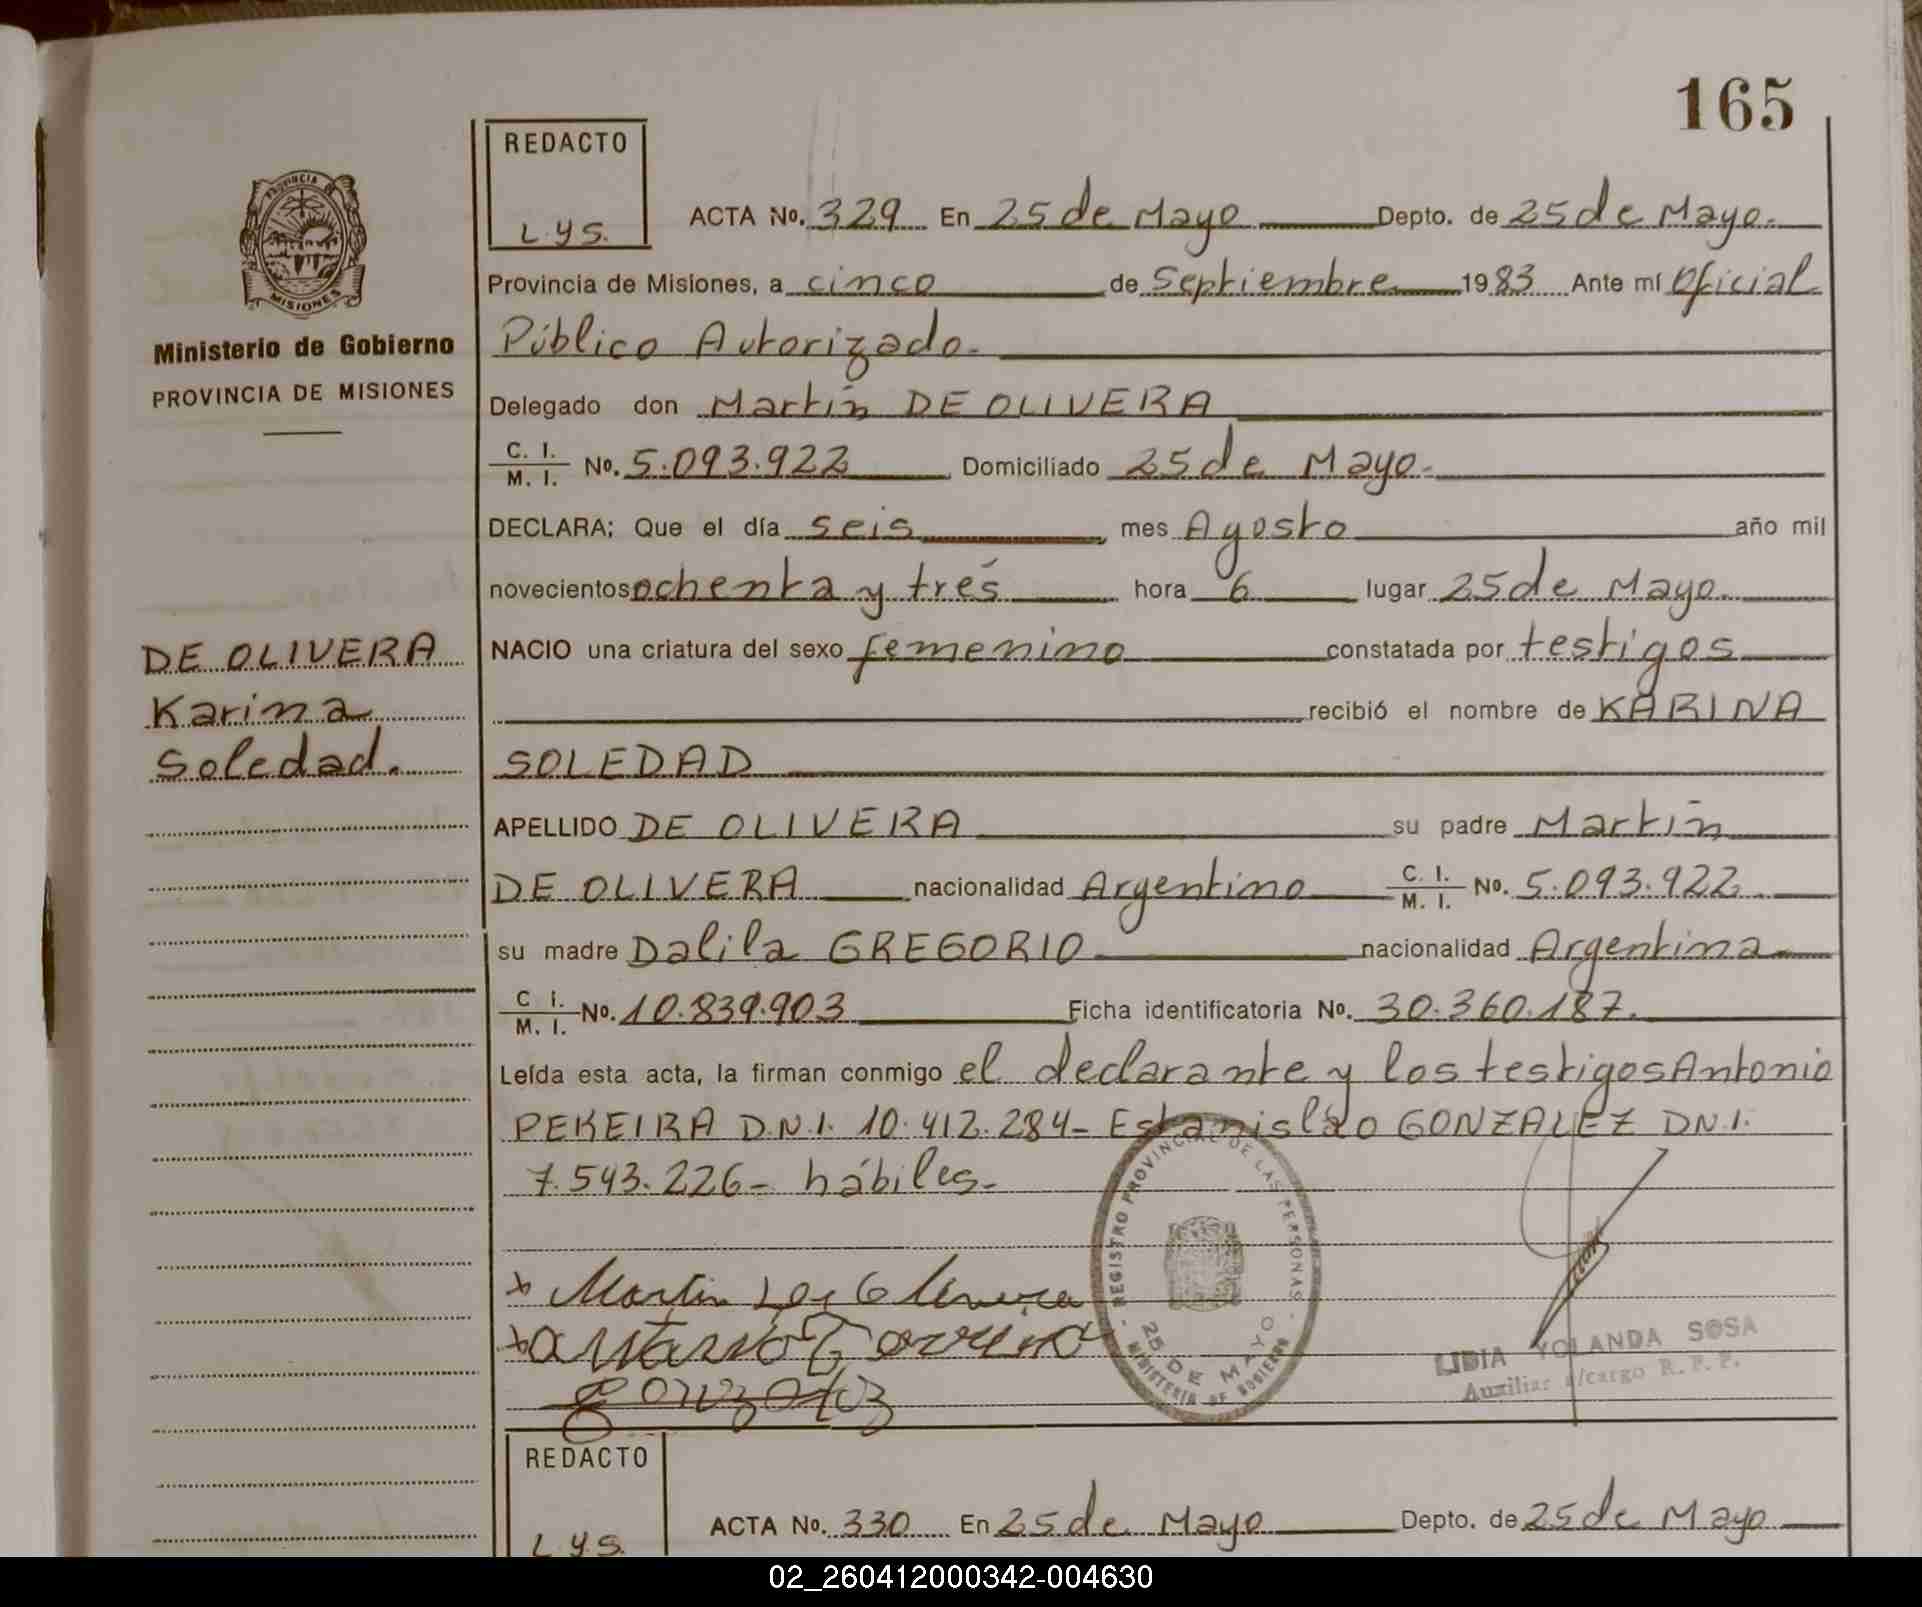 165
REDACTO
L.Y.S.
ACTA No. 329 En 25 de Mayo Depto. de 25 de Mayo.
PROVINCIA
MISIONES
Ministerio de Gobierno
PROVINCIA DE MISIONES
Provincia de Misiones, a cinco de Septiembre 1983 Ante mí Oficial
Público Autorizado.
Delegado don Martín DE OLIVERA
C. I. / M. I. No. 5.093.922 Domiciliado 25 de Mayo.
DECLARA; Que el día seis, mes Agosto año mil
novecientos ochenta y trés hora 6 lugar 25 de Mayo.
DE OLIVERA
Karina
Soledad.
NACIO una criatura del sexo femenino constatada por testigos
recibió el nombre de KARINA
SOLEDAD
APELLIDO DE OLIVERA su padre Martín
DE OLIVERA nacionalidad Argentino C. I. / M. I. No. 5.093.922
su madre Dalila GREGORIO nacionalidad Argentina
C I. / M. I. No. 10.839.903 Ficha identificatoria No. 30.360.187.
Leída esta acta, la firman conmigo el declarante y los testigos Antonio
PEREIRA D.N.I. 10.412.284- Estanisláo GONZALEZ DN.I.
7.543.226- hábiles-
REGISTRO PROVINCIAL DE LAS PERSONAS
25 DE MAYO
MINISTERIO DE GOBIERNO
Martin
LIDIA YOLANDA SOSA
Auxiliar a/cargo R. P. P.
REDACTO
L.Y.S.
ACTA No. 330 En 25 de Mayo Depto. de 25 de Mayo
02_260412000342-004630